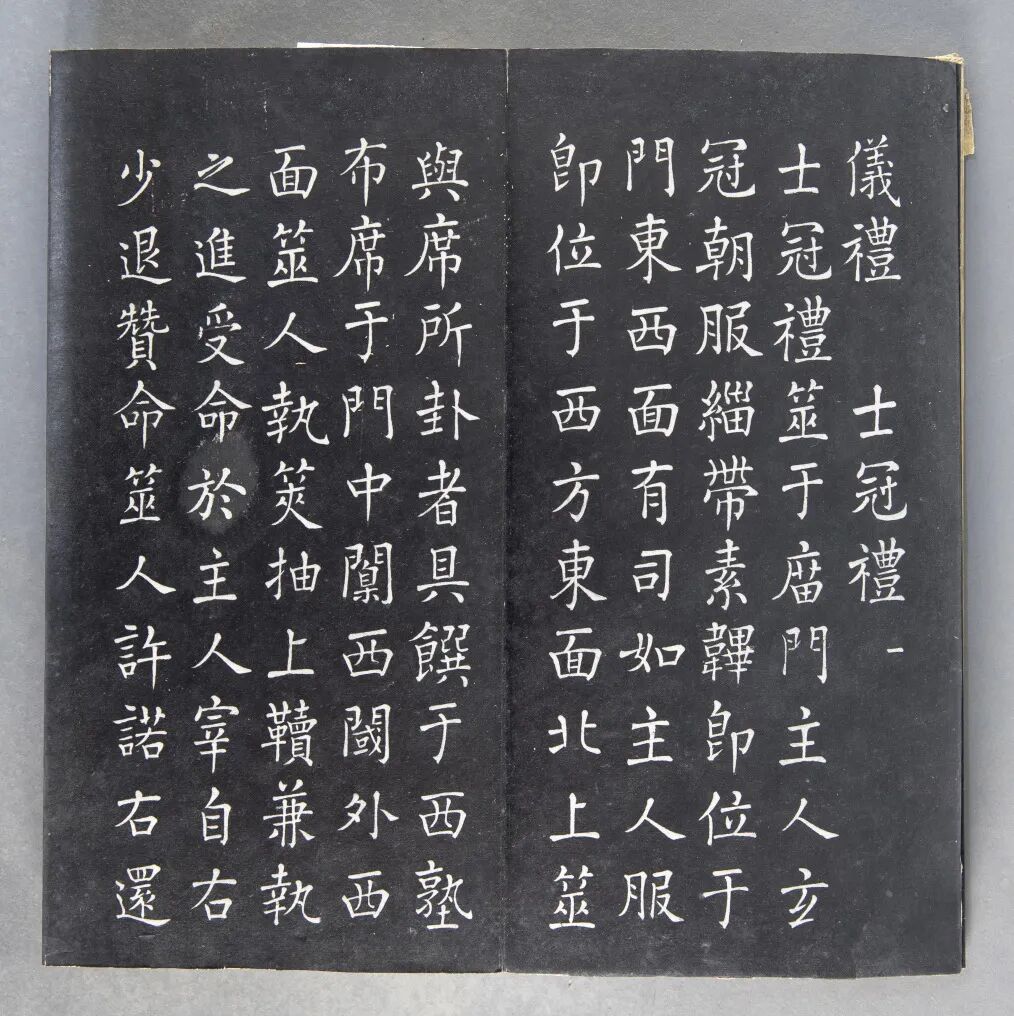 儀禮 士冠禮 一
士冠禮筮于庿門主人玄
冠朝服緇帶素韠卽位于
門東西面有司如主人服
卽位于西方東面北上筮
與席所卦者具饌于西塾
布席于門中闑西閾外西
面筮人執筴抽上韇兼執
之進受命於主人宰自右
少退贊命筮人許諾右還